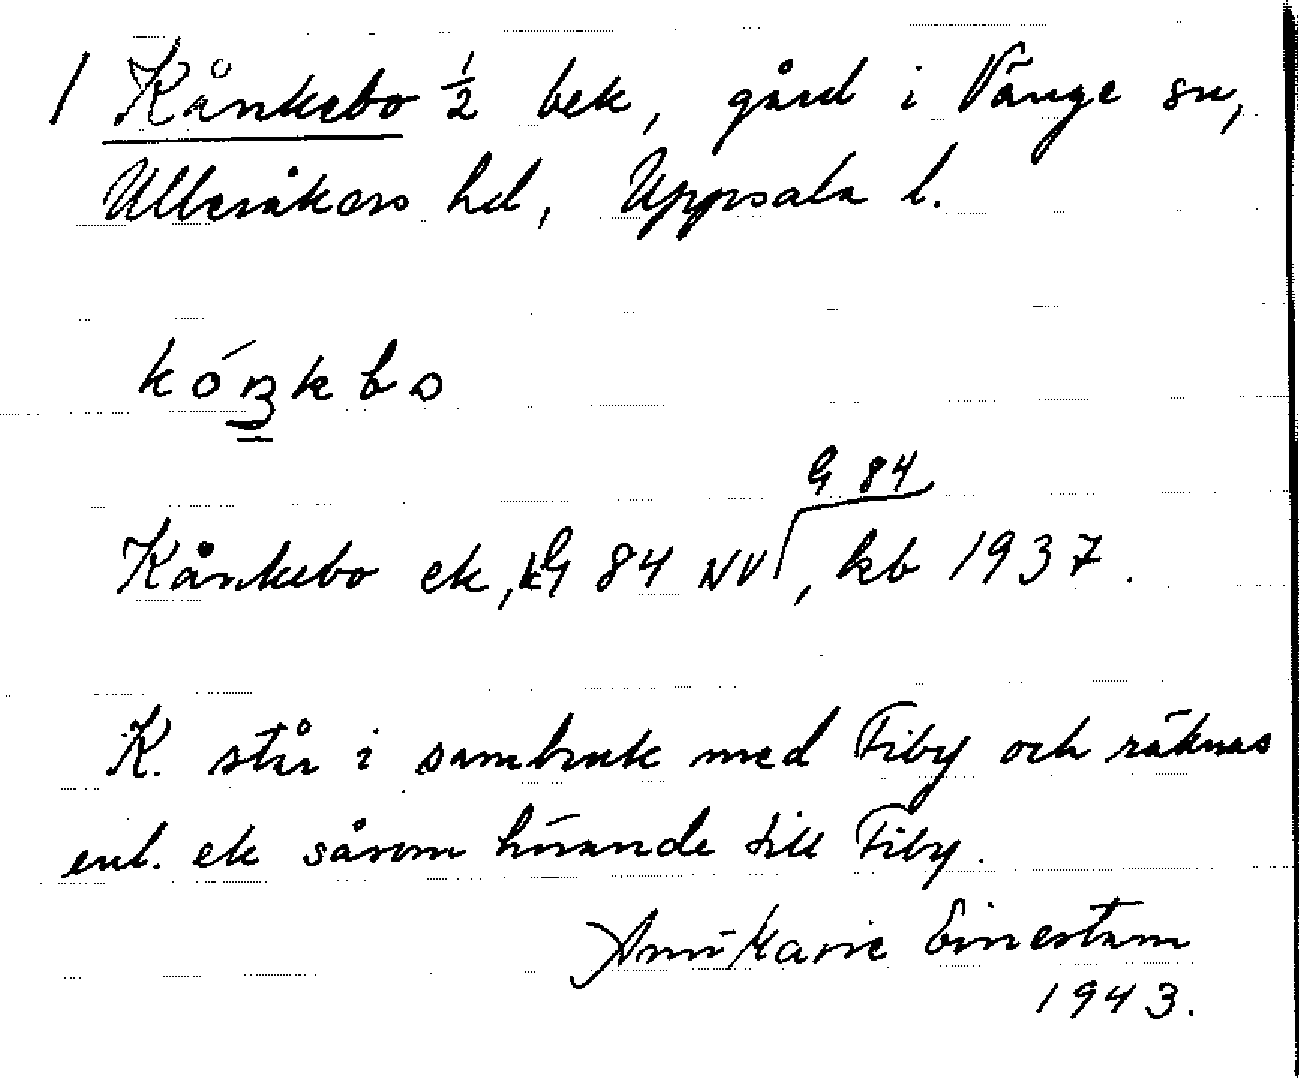 1 Kånkebo ½ bek, gård i Vänge sn,
Ulleråkers hd, Uppsala l.
kóŋkbo
G 84
Kånkebo ek, G 84 NV, kb 1937.
K. står i sambruk med Fiby och räknas
enl. ek såsom hörande till Fiby.
Ann Marie Einerstam
1943.